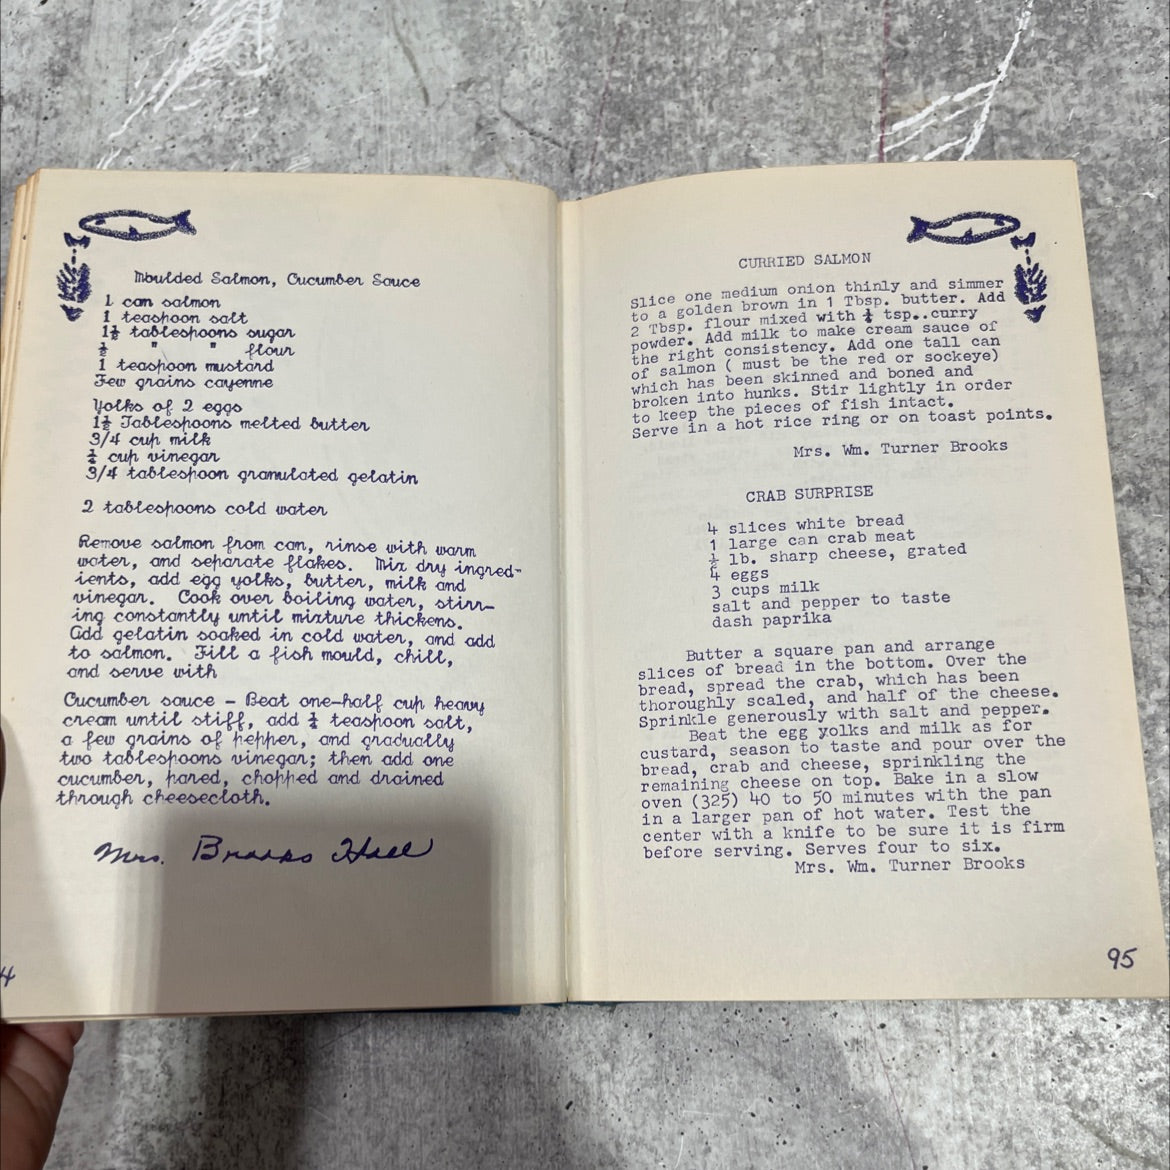 Moulded Salmon, Cucumber Sauce
1 can salmon
1 teaspoon salt
1½ tablespoons sugar
½ " " flour
1 teaspoon mustard
Few grains cayenne
Yolks of 2 eggs
1½ Tablespoons melted butter
3/4 cup milk
cup vinegar
3/4 tablespoon granulated gelatin
2 tablespoons cold water
Remove salmon from can, rinse with warm
water, and separate flakes. Mix dry ingred-
ients, add egg yolks, butter, milk and
vinegar. Cook over boiling water, stirr-
ing constantly until mixture thickens.
Add gelatin soaked in cold water, and add
to salmon. Fill a fish mould, chill,
and serve with
Cucumber sauce - Beat one-half cup heavy
cream until stiff, add teaspoon salt,
a few grains of pepper, and gradually
two tablespoons vinegar; then add one
cucumber, pared, chopped and drained
through cheesecloth.
Mrs. Brooks Hall
4
CURRIED SALMON
Slice one medium onion thinly and simmer
to a golden brown in 1 Tbsp. butter. Add
2 Tbsp. flour mixed with tsp..curry
powder. Add milk to make cream sauce of
the right consistency. Add one tall can
of salmon ( must be the red or sockeye)
which has been skinned and boned and
broken into hunks. Stir lightly in order
to keep the pieces of fish intact.
Serve in a hot rice ring or on toast points.
Mrs. Wm. Turner Brooks
CRAB SURPRISE
4 slices white bread
1 large can crab meat
½ lb. sharp cheese, grated
4 eggs
3 cups milk
salt and pepper to taste
dash paprika
Butter a square pan and arrange
slices of bread in the bottom. Over the
bread, spread the crab, which has been
thoroughly scaled, and half of the cheese.
Sprinkle generously with salt and pepper.
Beat the egg yolks and milk as for
custard, season to taste and pour over the
bread, crab and cheese, sprinkling the
remaining cheese on top. Bake in a slow
oven (325) 40 to 50 minutes with the pan
in a larger pan of hot water. Test the
center with a knife to be sure it is firm
before serving. Serves four to six.
Mrs. Wm. Turner Brooks
95